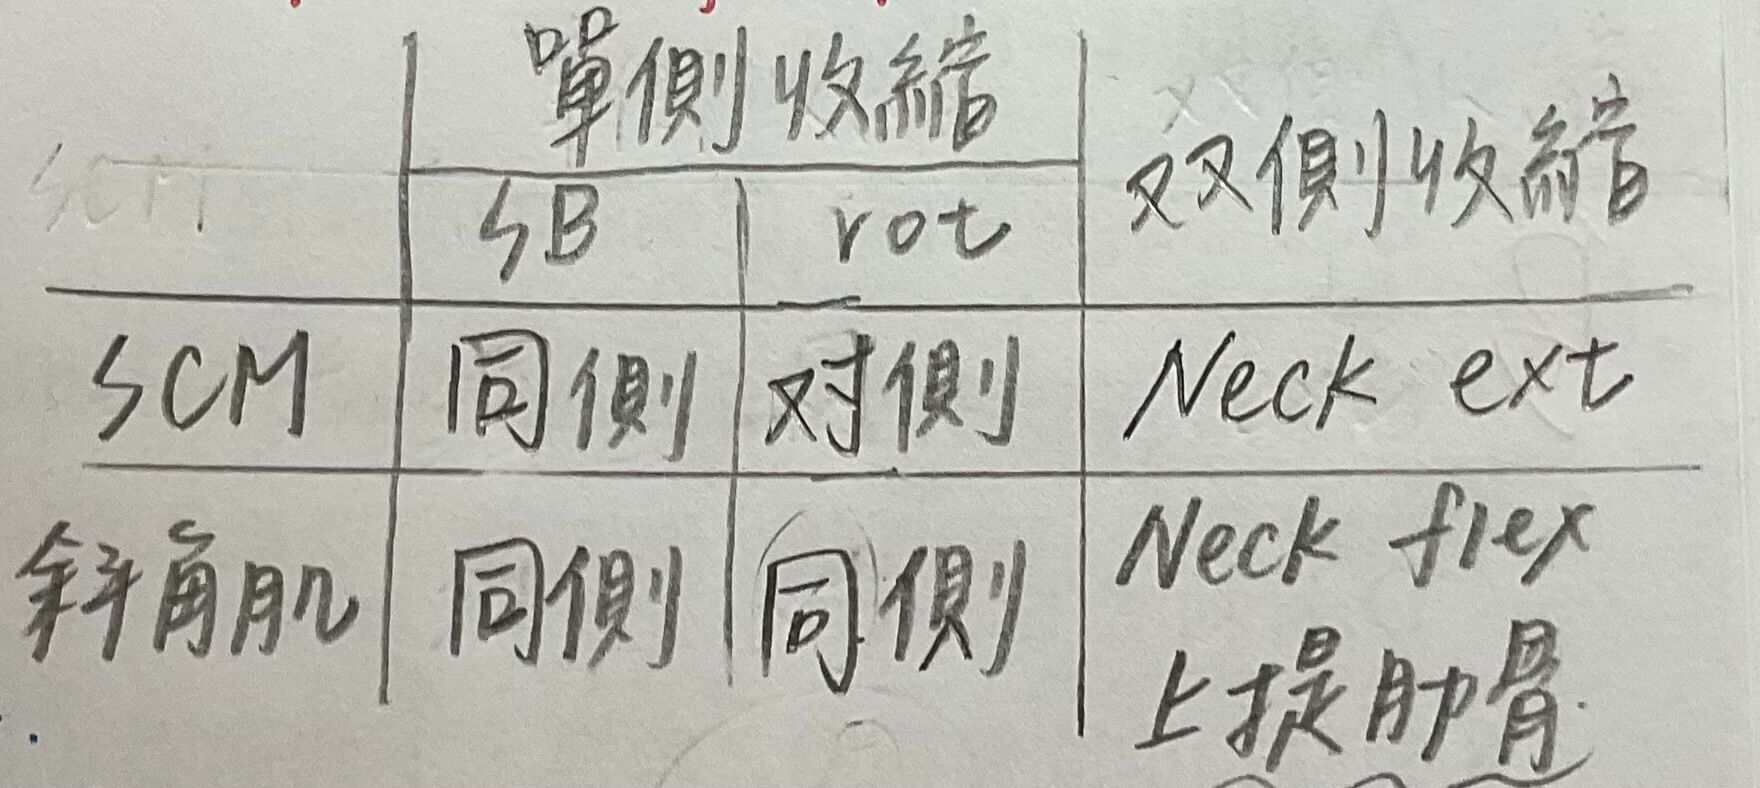 單側收縮
双側收縮
SB rot
SCM 同側 对側 Neck ext
斜角肌 同側 同側 Neck flex
上提肋骨